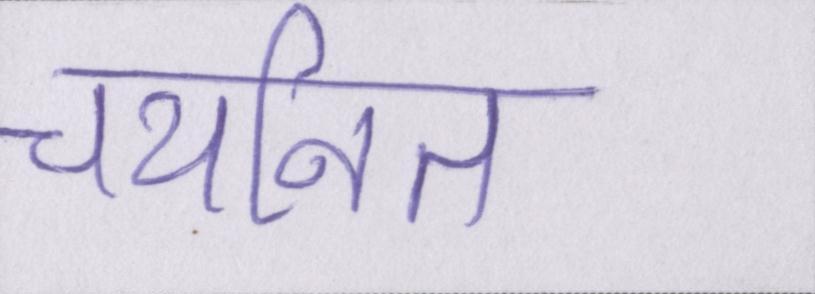 चयनित